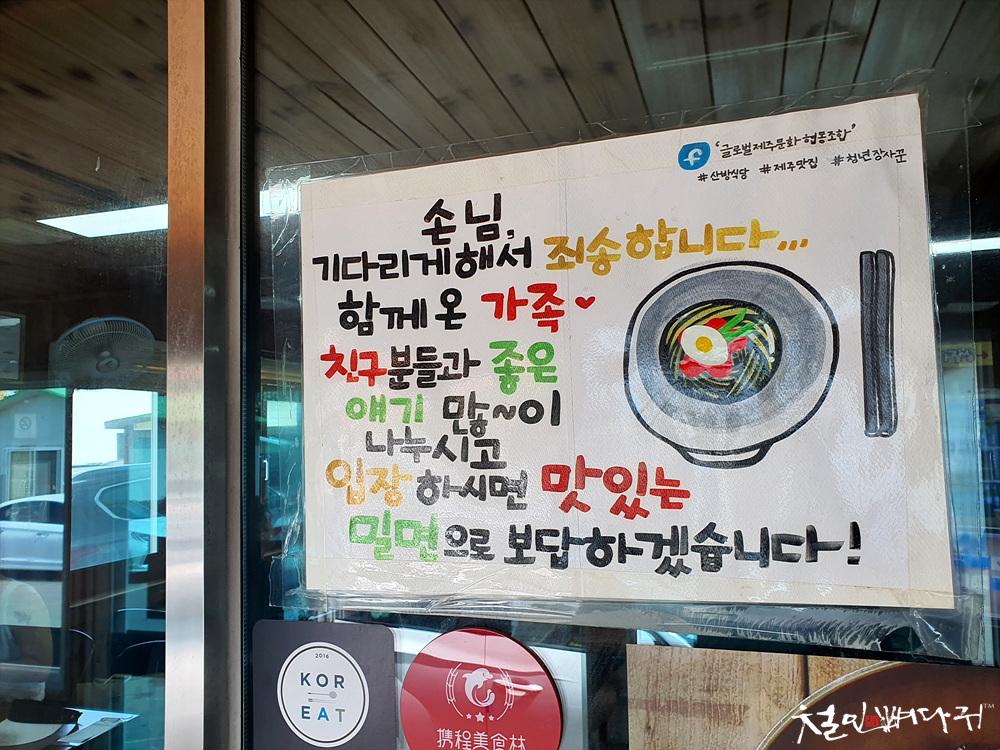 '글로벌제주문화협동조합'
#산방식당 #제주맛집 #청년장사꾼
손님,
기다리게해서 죄송합니다...
함께온 가족
친구분들과 좋은
얘기 많~이
나누시고
입장하시면 맛있는
밀면으로 보답하겠습니다!
2016
KOR
EAT
携程美食林
철민빠다쥐™